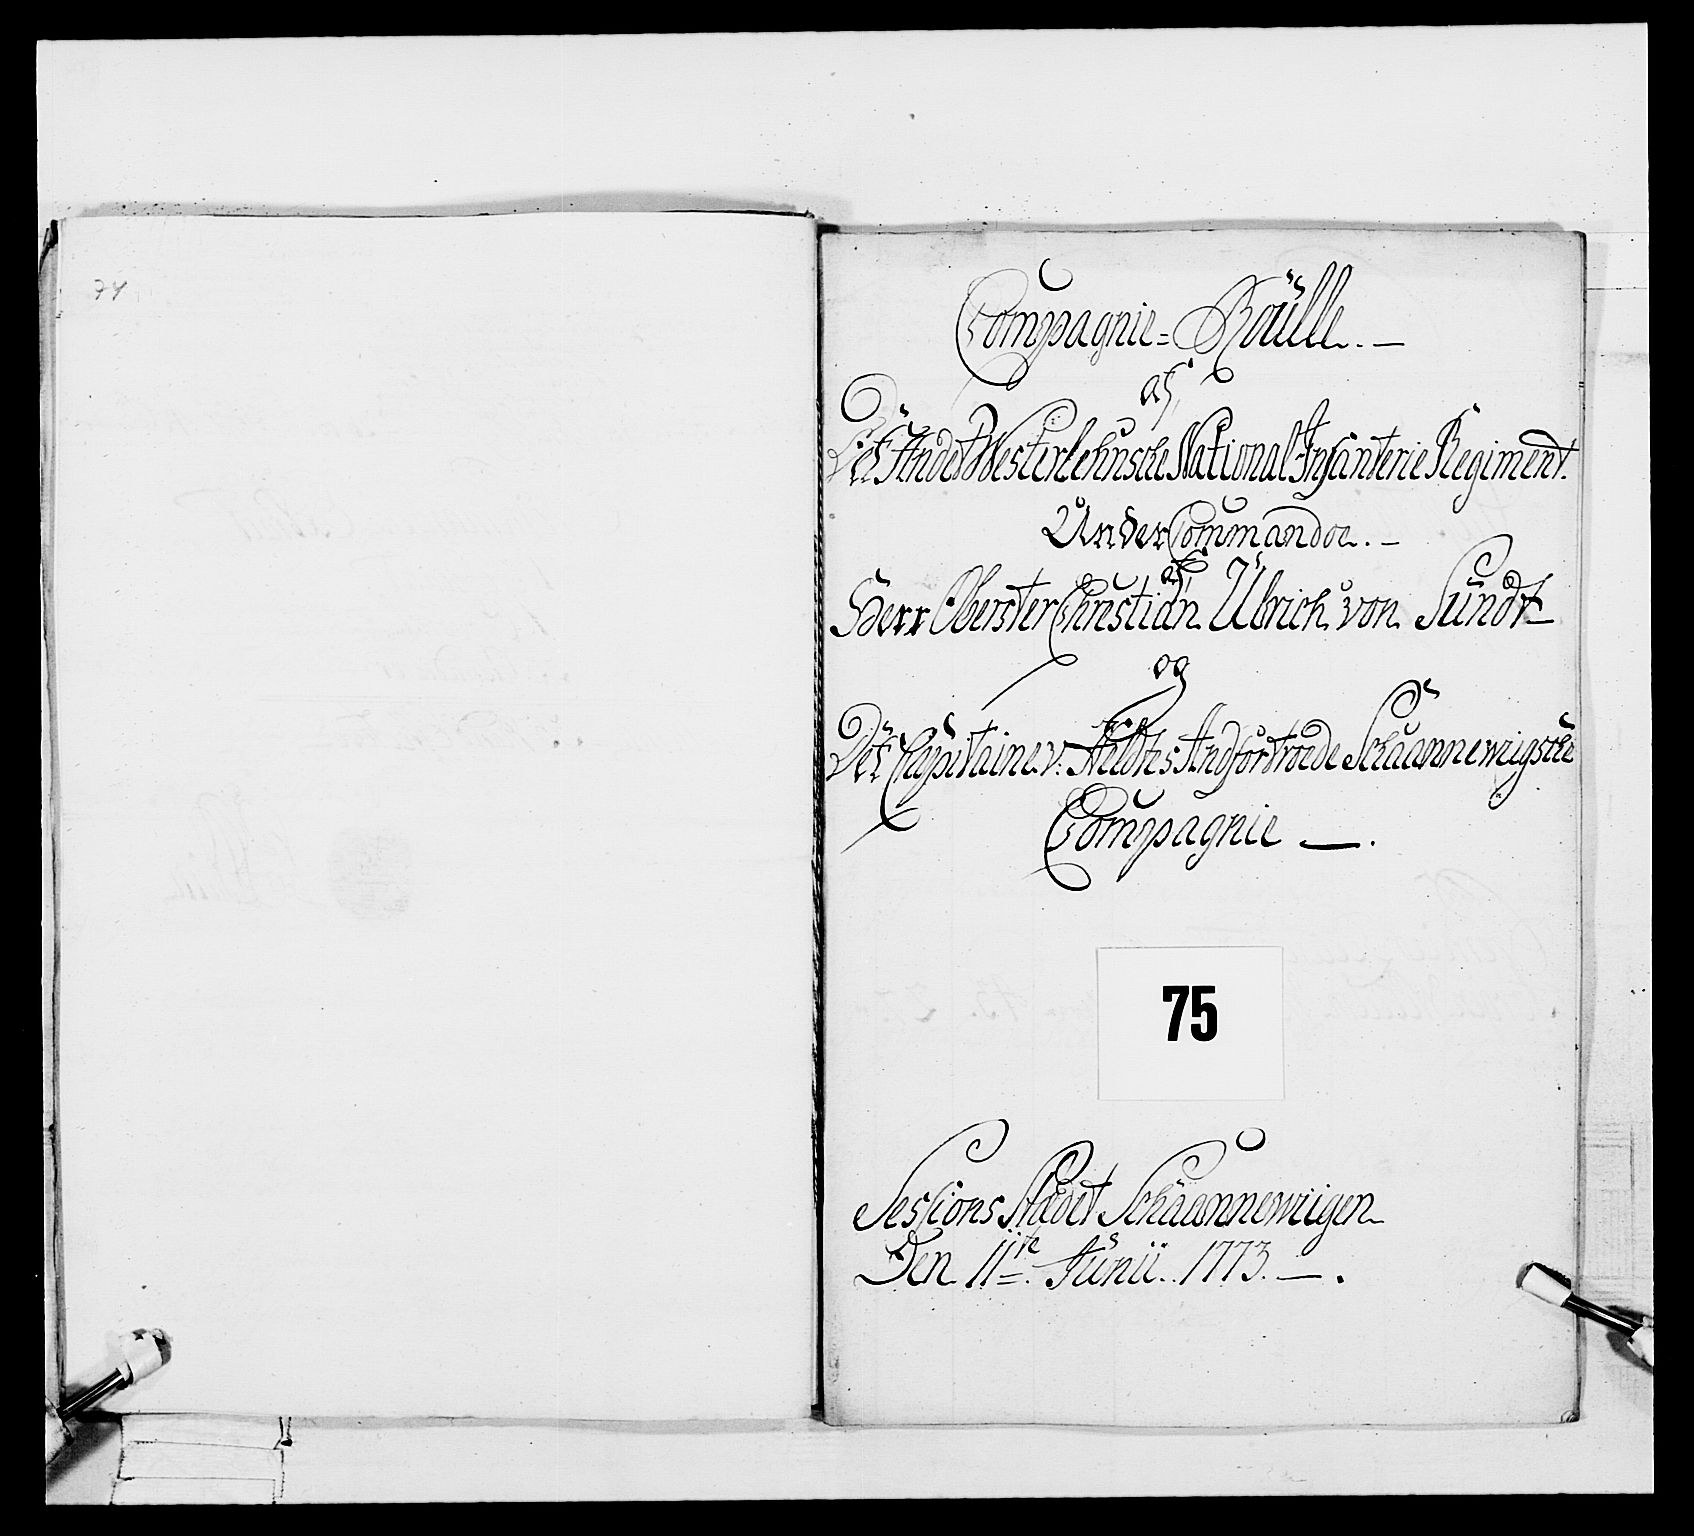 74
Compagnie=Roülle. —
af
Det Andet Westerlehnsche National Infanterie Regiment.
Under Commandoe. –
af
Herr Oberster Christian Ülrich von Sündt
og
Det Capitaine v: Heldtes Andfortroede Schaannewiigsche
Compagnie — .
75
Sessions Stædet Schaannewiigen
Den 11te Junii. 1773. — .